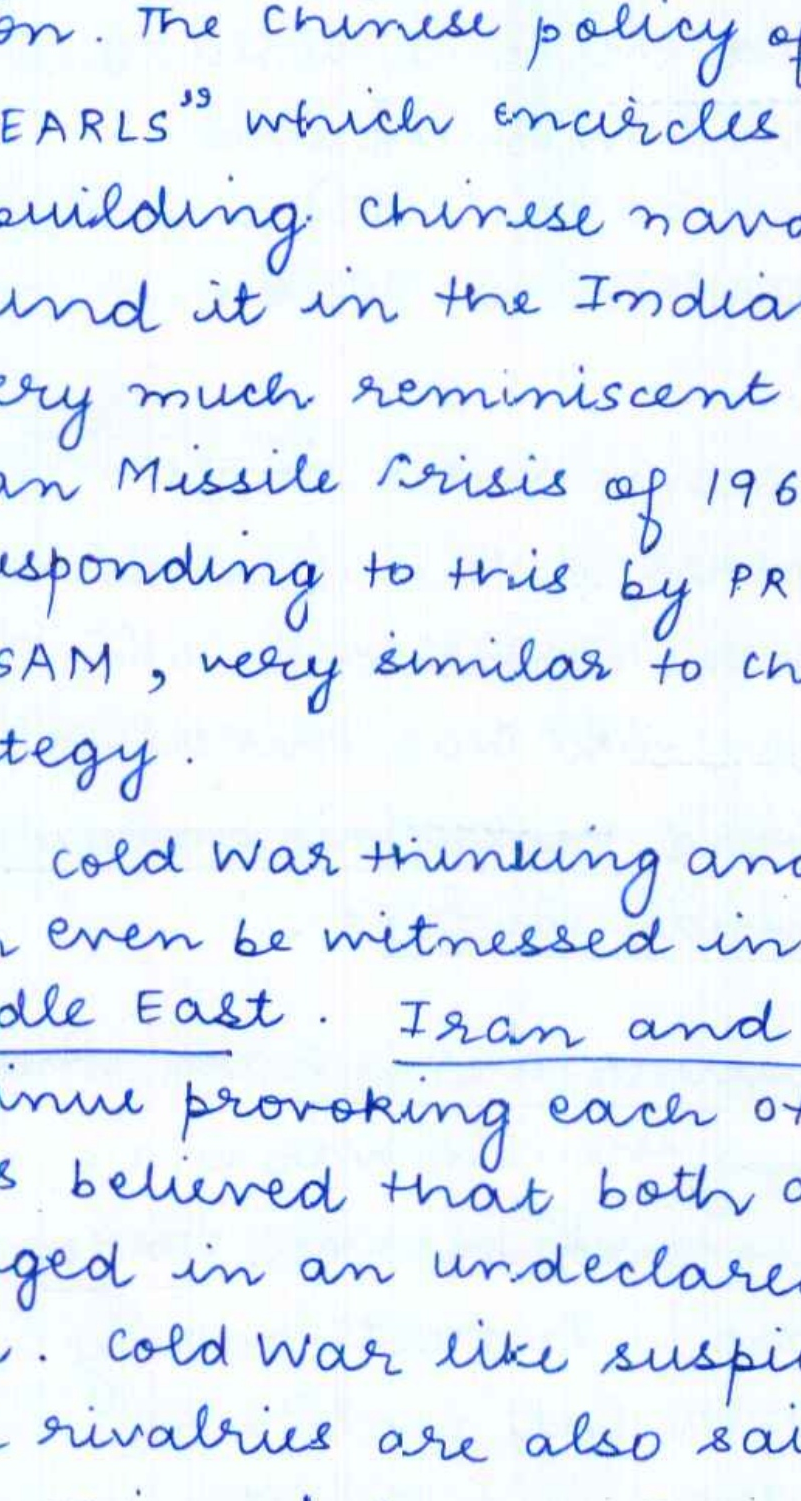 on. The Chinese policy of
EARLS" which encircles
building Chinese nava
und it in the India
ery much reminiscent
an Missile Crisis of 196
esponding to this by PR
SAM, very similar to ch
tegy.
cold war thinking and
n even be witnessed in
dle East. Iran and
inue provoking each ot
s believed that both a
ged in an undeclared
. cold war like suspi
rivalries are also sai